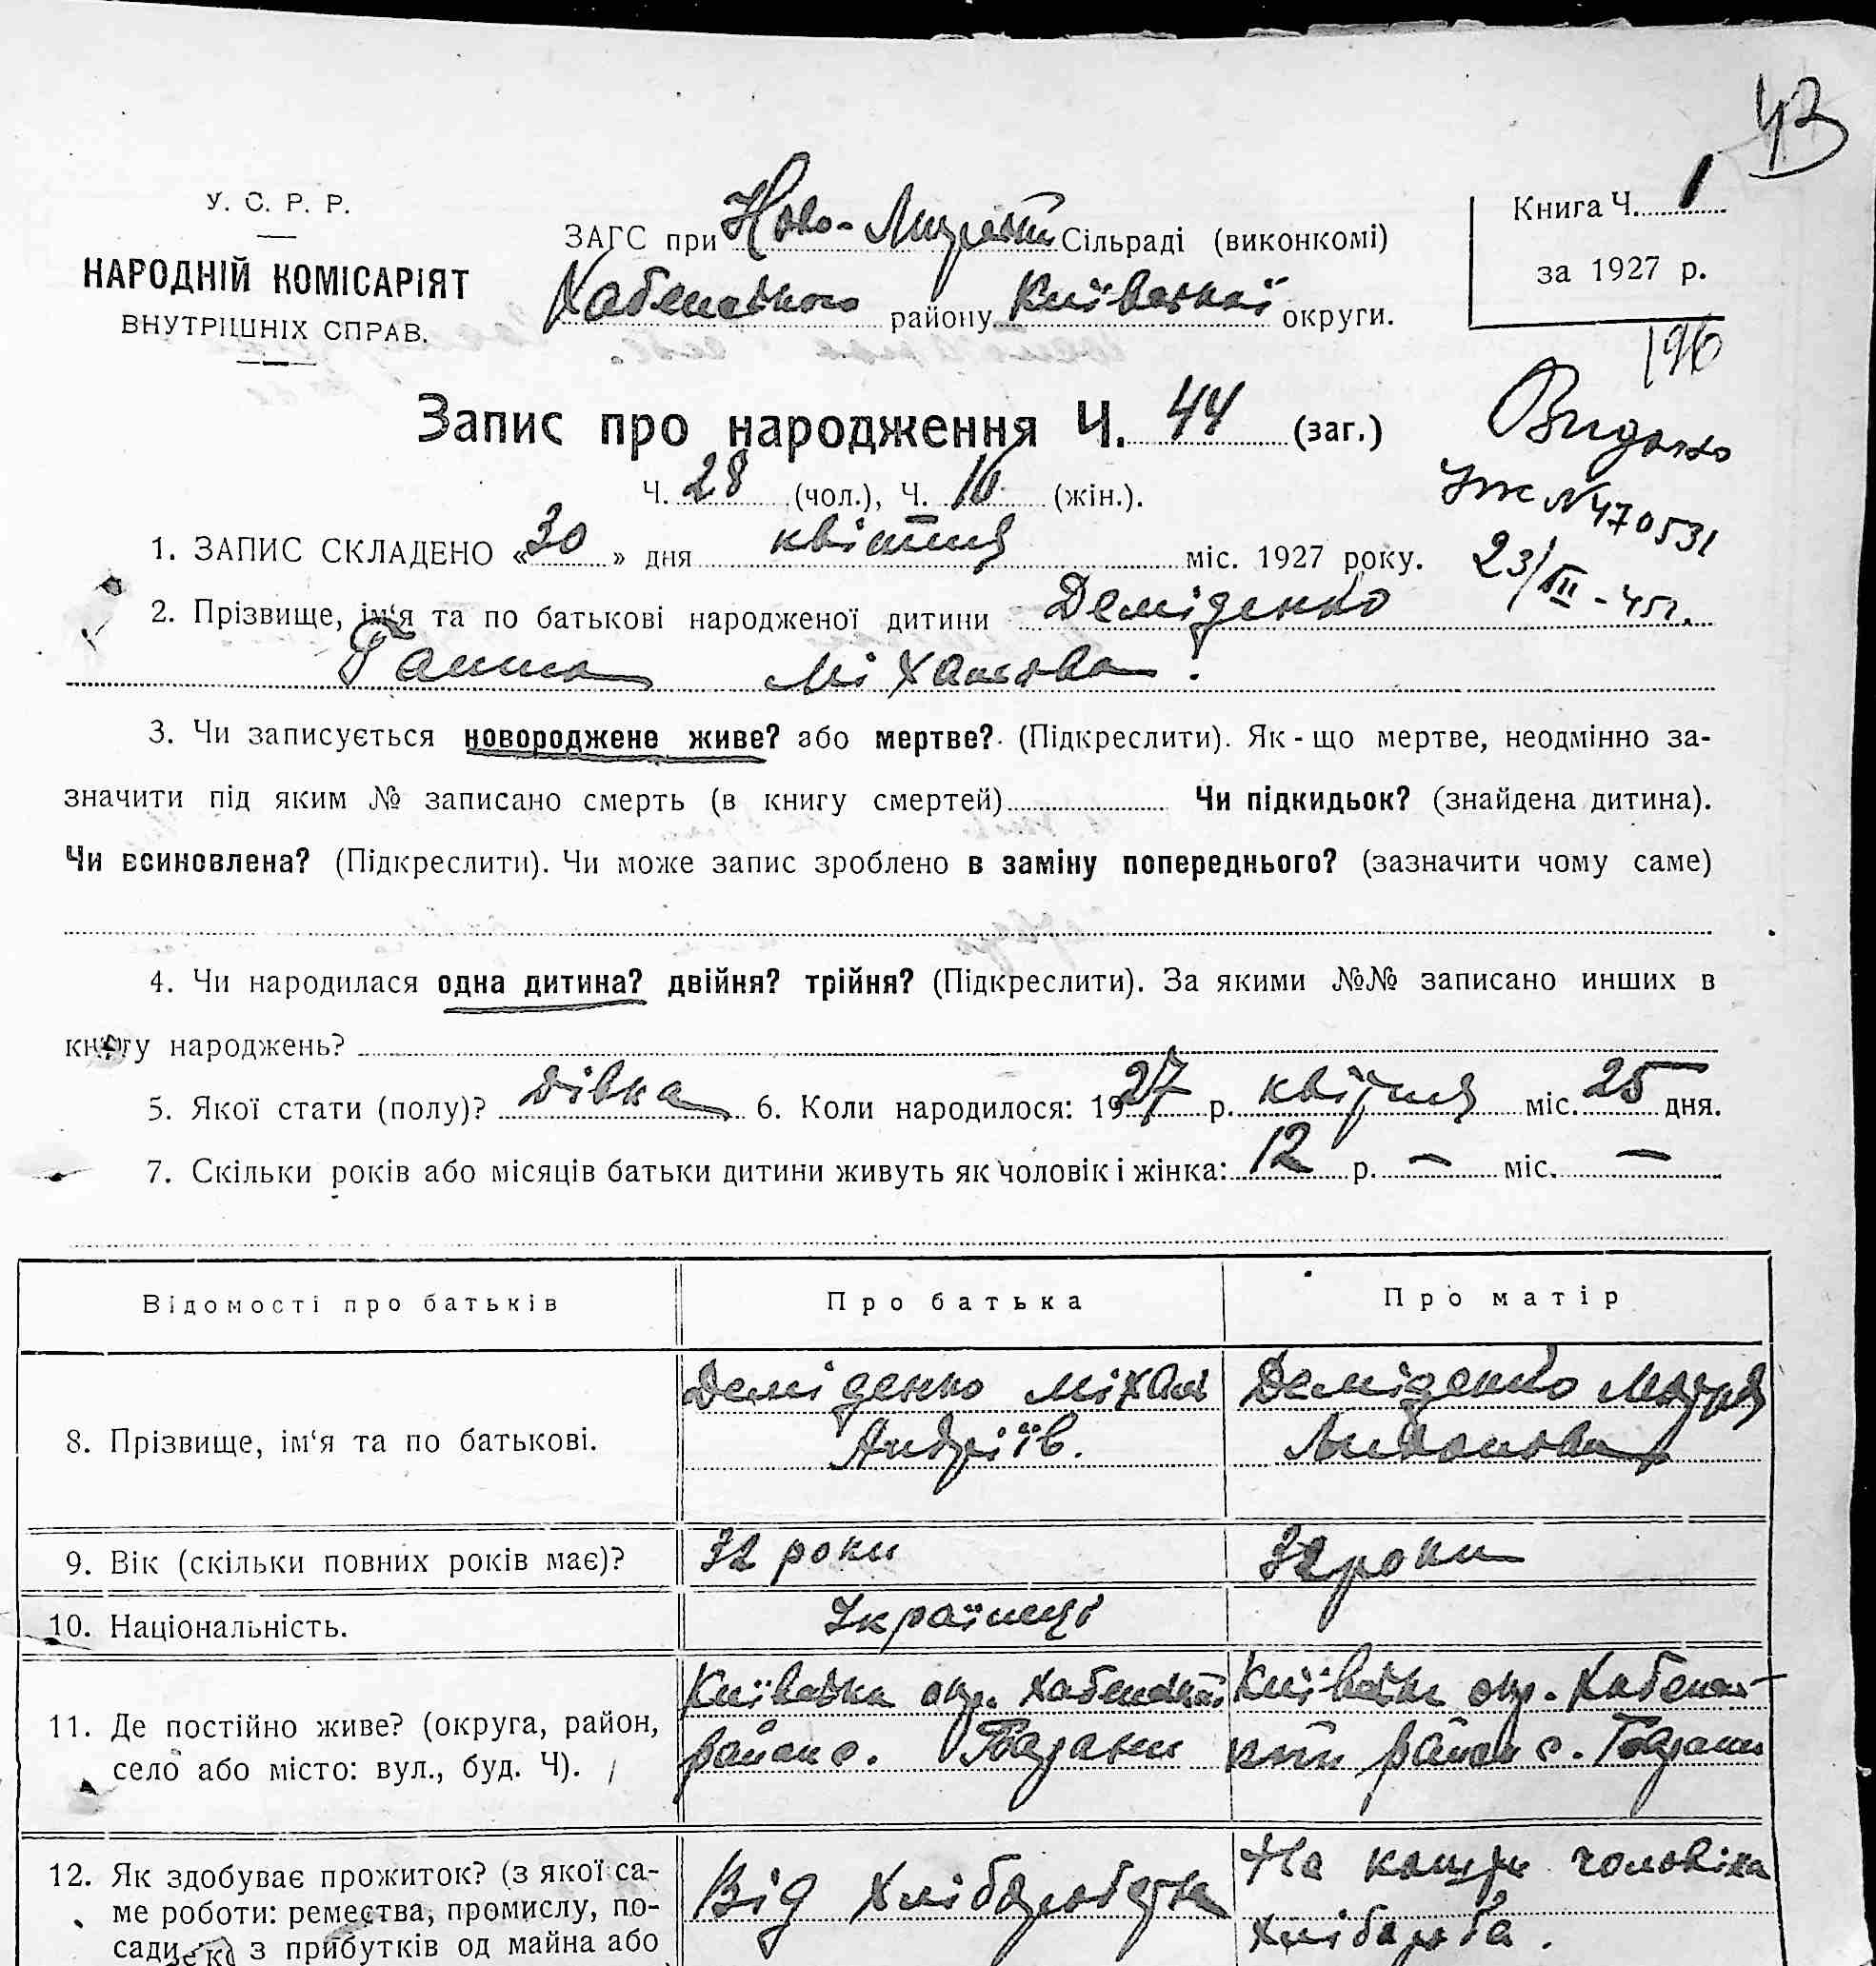 43
У. С. Р. Р.
НАРОДНІЙ КОМІСАРІЯТ
ВНУТРІШНІХ СПРАВ.
ЗАГС при Ново-Мирській Сільраді (виконкомі)
Хабенського району Київської округи.
Книга Ч. 1
за 1927 р.
196
Запис про народження Ч. 44 (заг.)
Ч. 28 (чол.), Ч. 16 (жін.).
Видано
N 470531
23/VII - 45 г.
1. ЗАПИС СКЛАДЕНО «30» дня квітня міс. 1927 року.
2. Прізвище, ім'я та по батькові народженої дитини Деміденко
Ганна Міхайлова.
3. Чи записується новороджене живе? або мертве? (Підкреслити). Як-що мертве, неодмінно за-
значити під яким № записано смерть (в книгу смертей) Чи підкидьок? (знайдена дитина).
Чи всиновлена? (Підкреслити). Чи може запис зроблено в заміну попереднього? (зазначити чому саме)
4. Чи народилася одна дитина? двійня? трійня? (Підкреслити). За якими №№ записано инших в
книгу народжень?
5. Якої стати (полу)? дівка 6. Коли народилося: 1927 р. квітня міс. 25 дня.
7. Скільки років або місяців батьки дитини живуть як чоловік і жінка: 12 р. — міс. —
Відомості про батьків
Про батька
Про матір
8. Прізвище, ім'я та по батькові.
Деміденко Міхайло
Андріїв.
Деміденко
9. Вік (скільки повних років має)?
32 роки
32 роки
10. Національність.
Українці
11. Де постійно живе? (округа, район,
село або місто: вул., буд. Ч).
Київська окр. Хабенський
район с.
Київська окр. Хабенсь-
кий район с.
12. Як здобуває прожиток? (з якої са-
ме роботи: ремества, промислу, по-
сади з прибутків од майна або
Від хліборобства
На кошти чоловіка
хлібороба.